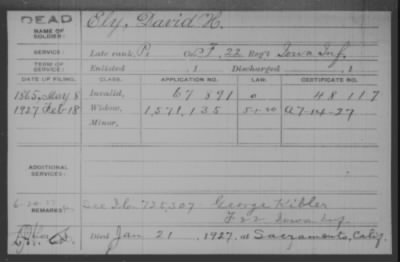 DEAD
NAME OF SOLDIER: Ely, David H.
SERVICE: Late rank, P. Co. F, 22 Reg't Iowa Inf.
TERM OF SERVICE: Enlisted , 1 Discharged , 1
DATE OF FILING. CLASS. APPLICATION NO. LAW. CERTIFICATE NO.
1865, May 8 Invalid, 67 891 0 48 117
1927 Feb 18 Widow, 1,571,135 5-1-20 A 7-14-27
Minor,
ADDITIONAL SERVICES:
REMARKS: See I.C. 725,307 George Kibler
F 22 Iowa Inf
Died Jan 21, 1927, at Sacramento, Calif.